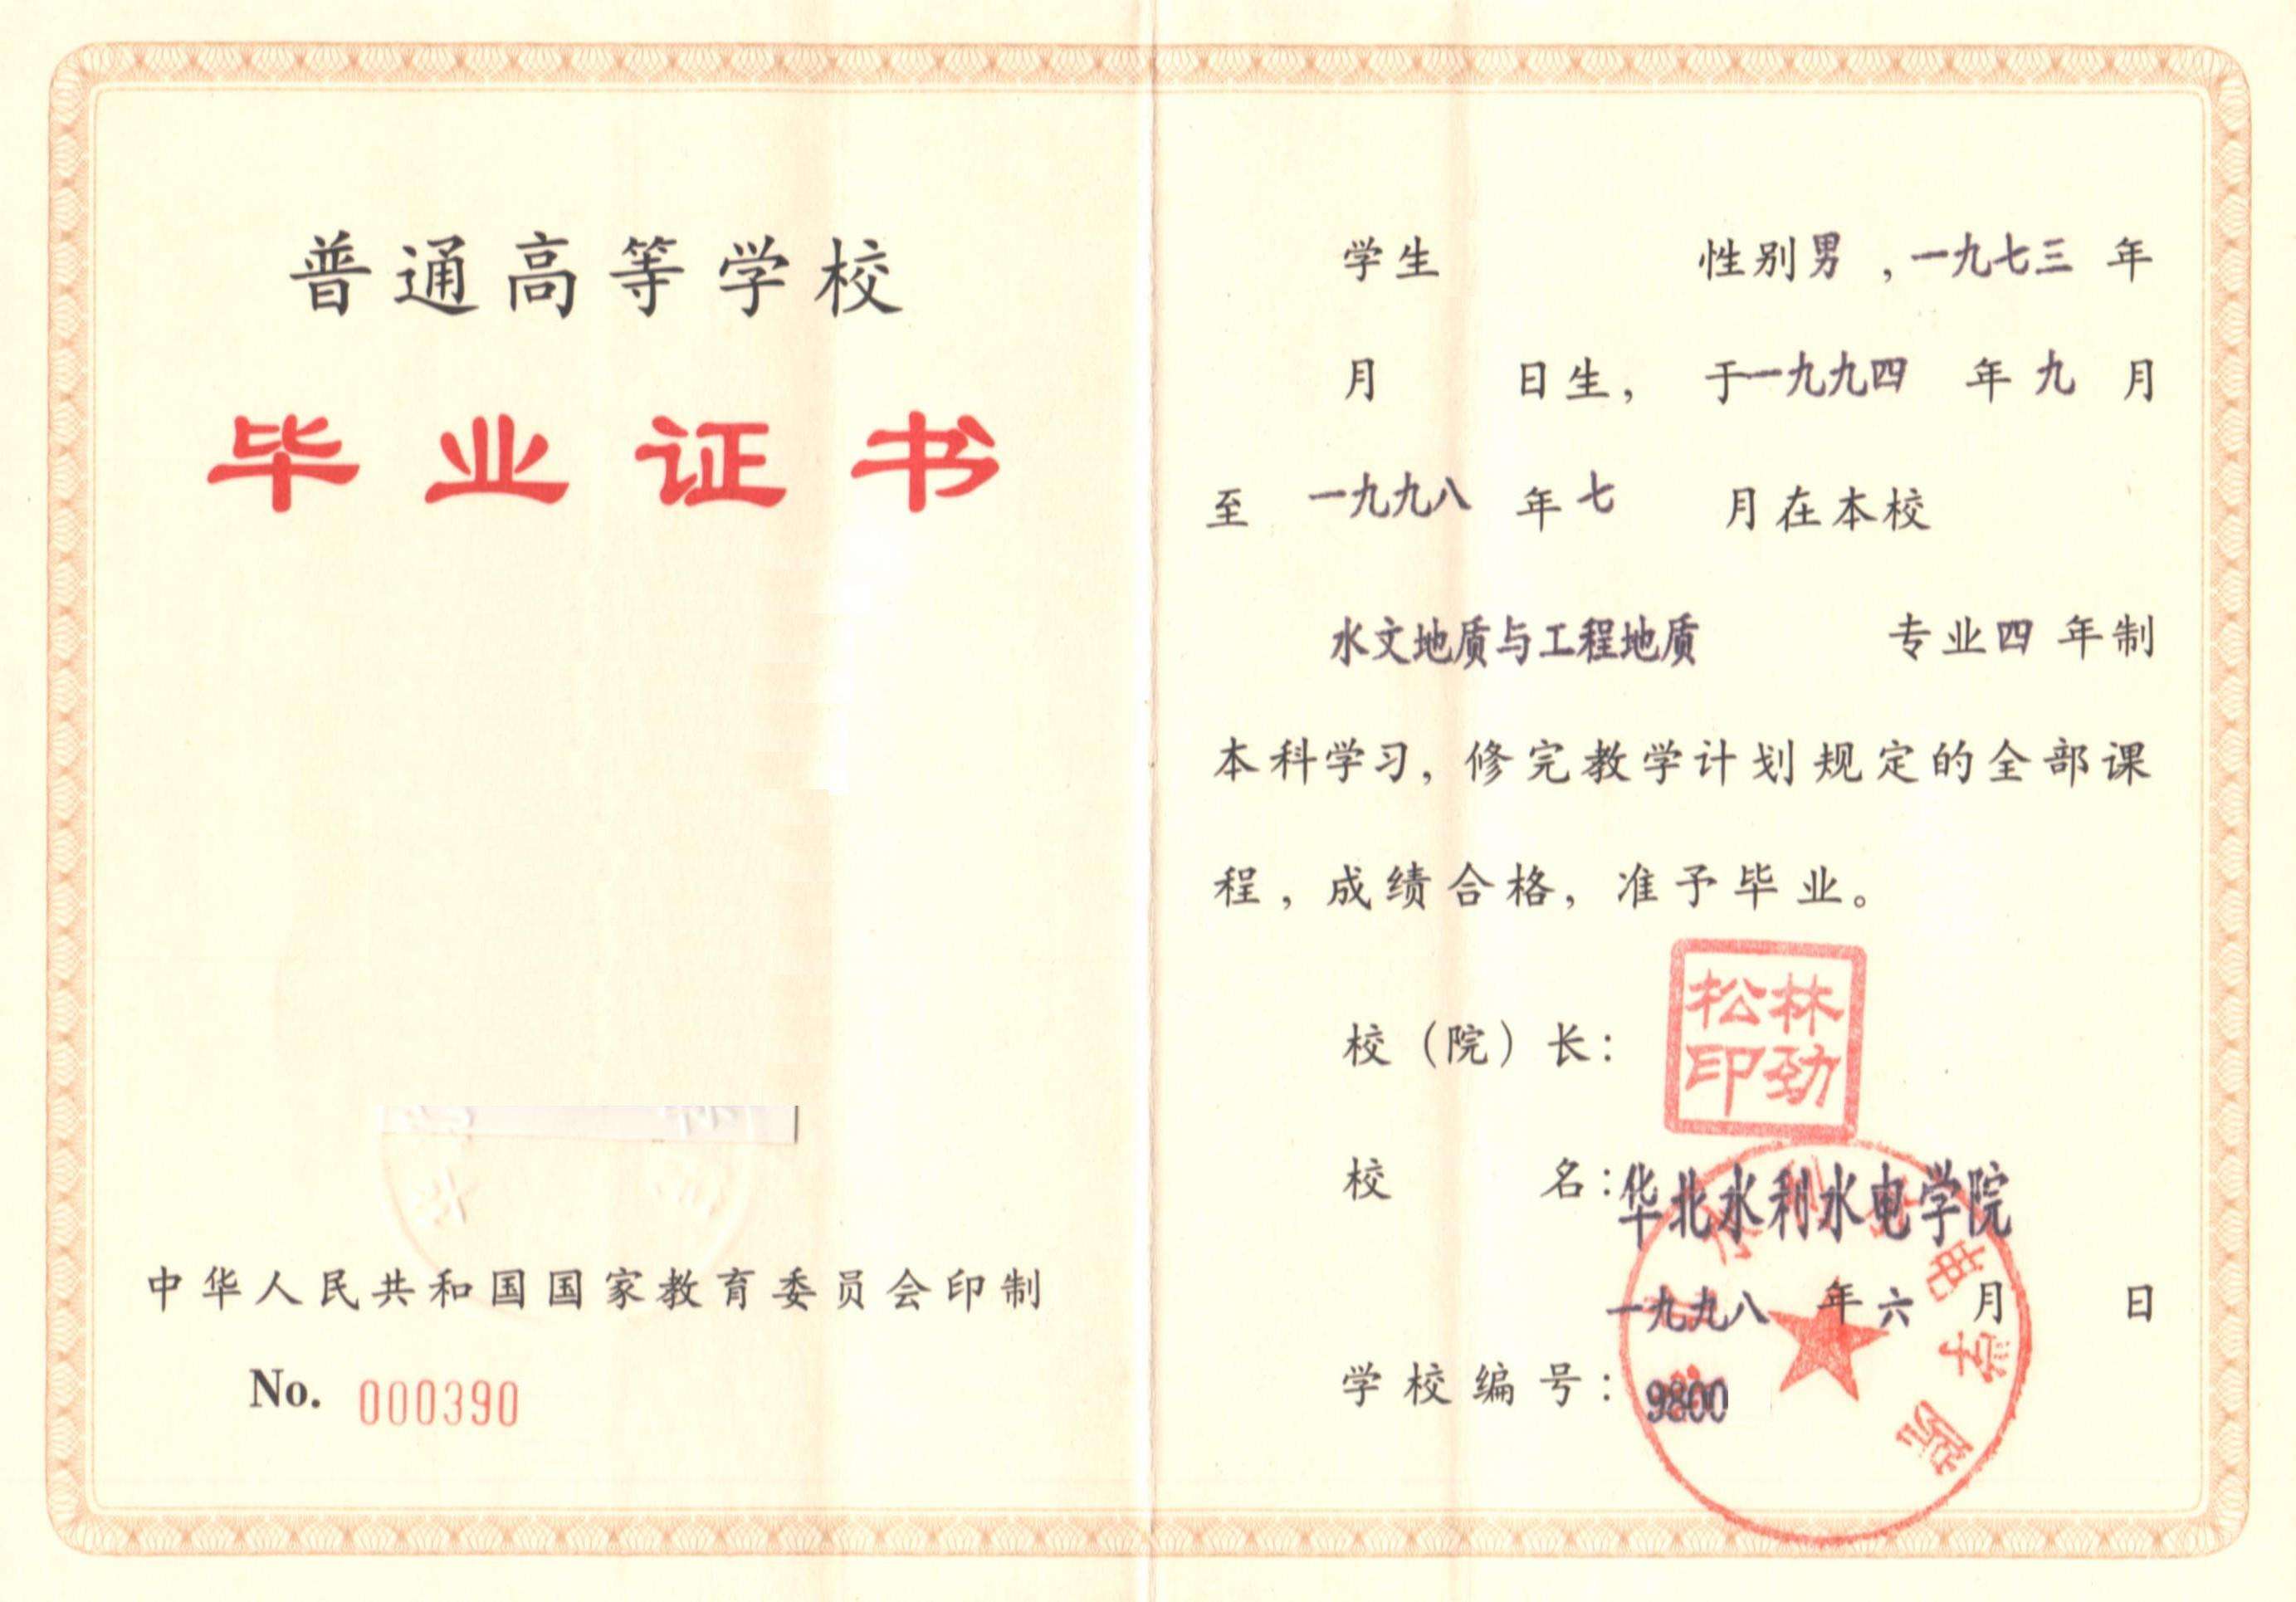 普通高等学校
毕业证书
中华人民共和国国家教育委员会印制
No. 000390
学生 性别男，一九七三 年
月 日生， 于一九九四 年九 月
至 一九九八 年七 月在本校
水文地质与工程地质 专业四 年制
本科学习，修完教学计划规定的全部课
程，成绩合格，准予毕业。
校（院）长：
林劲松印
校 名：华北水利水电学院
一九九八 年六 月 日
学校编号：9800
水 电学院